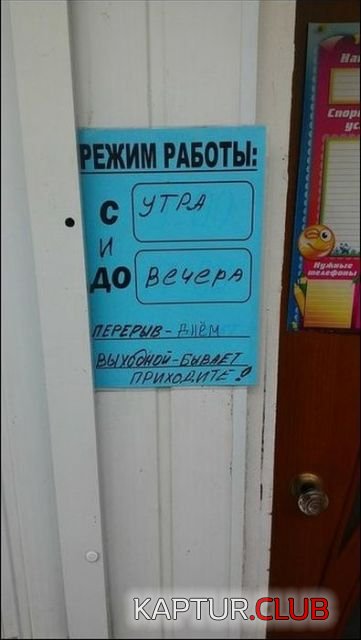 РЕЖИМ РАБОТЫ:
С УТРА
И
ДО ВЕЧЕРА
ПЕРЕРЫВ - ДНЁМ
ВЫХОДНОЙ - БЫВАЕТ
ПРИХОДИТЕ!
Нужные
телефоны
KAPTUR.CLUB